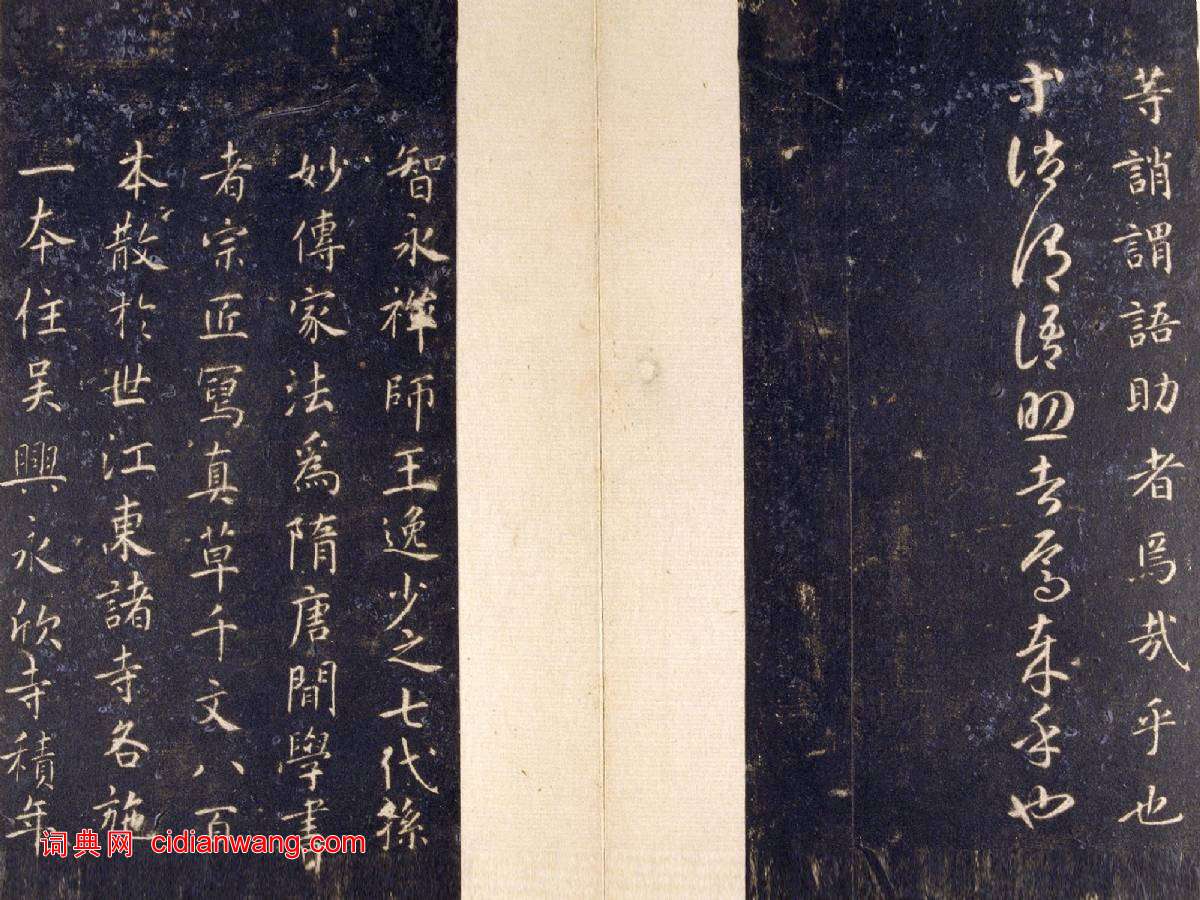 等誚謂語助者焉哉乎也
等誚謂語助者焉哉乎也
智永禅師王逸少之七代孫
妙傳家法爲隋唐間學書
者宗匠寫真草千文八百
本散於世江東諸寺各施
一本住吴興永欣寺積年
词典网 cidianwang.com